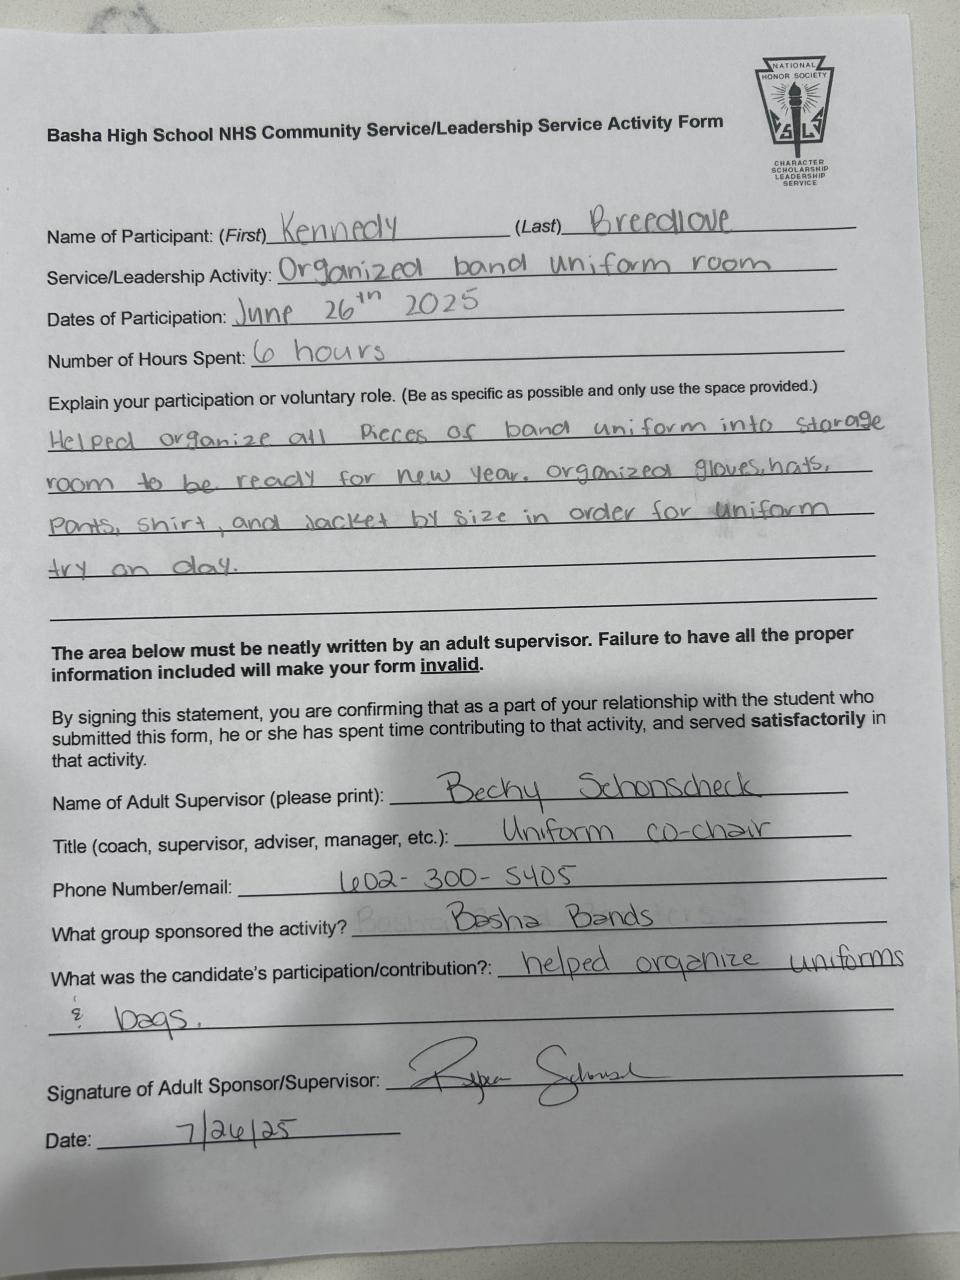 NATIONAL
HONOR SOCIETY
S L S
CHARACTER
SCHOLARSHIP
LEADERSHIP
SERVICE
Basha High School NHS Community Service/Leadership Service Activity Form
Name of Participant: (First) Kennedy (Last) Breedlove
Service/Leadership Activity: Organized band uniform room
Dates of Participation: June 26th 2025
Number of Hours Spent: 6 hours
Explain your participation or voluntary role. (Be as specific as possible and only use the space provided.)
Helped organize all pieces of band uniform into storage
room to be ready for new year. organized gloves, hats,
pants, shirt, and jacket by size in order for uniform
try on day.
The area below must be neatly written by an adult supervisor. Failure to have all the proper
information included will make your form invalid.
By signing this statement, you are confirming that as a part of your relationship with the student who
submitted this form, he or she has spent time contributing to that activity, and served satisfactorily in
that activity.
Name of Adult Supervisor (please print): Becky Schonscheck
Title (coach, supervisor, adviser, manager, etc.): Uniform co-chair
Phone Number/email: 602-300-5405
What group sponsored the activity? Basha Bands
What was the candidate's participation/contribution?: helped organize uniforms
& bags.
Signature of Adult Sponsor/Supervisor:
Date: 7/26/25